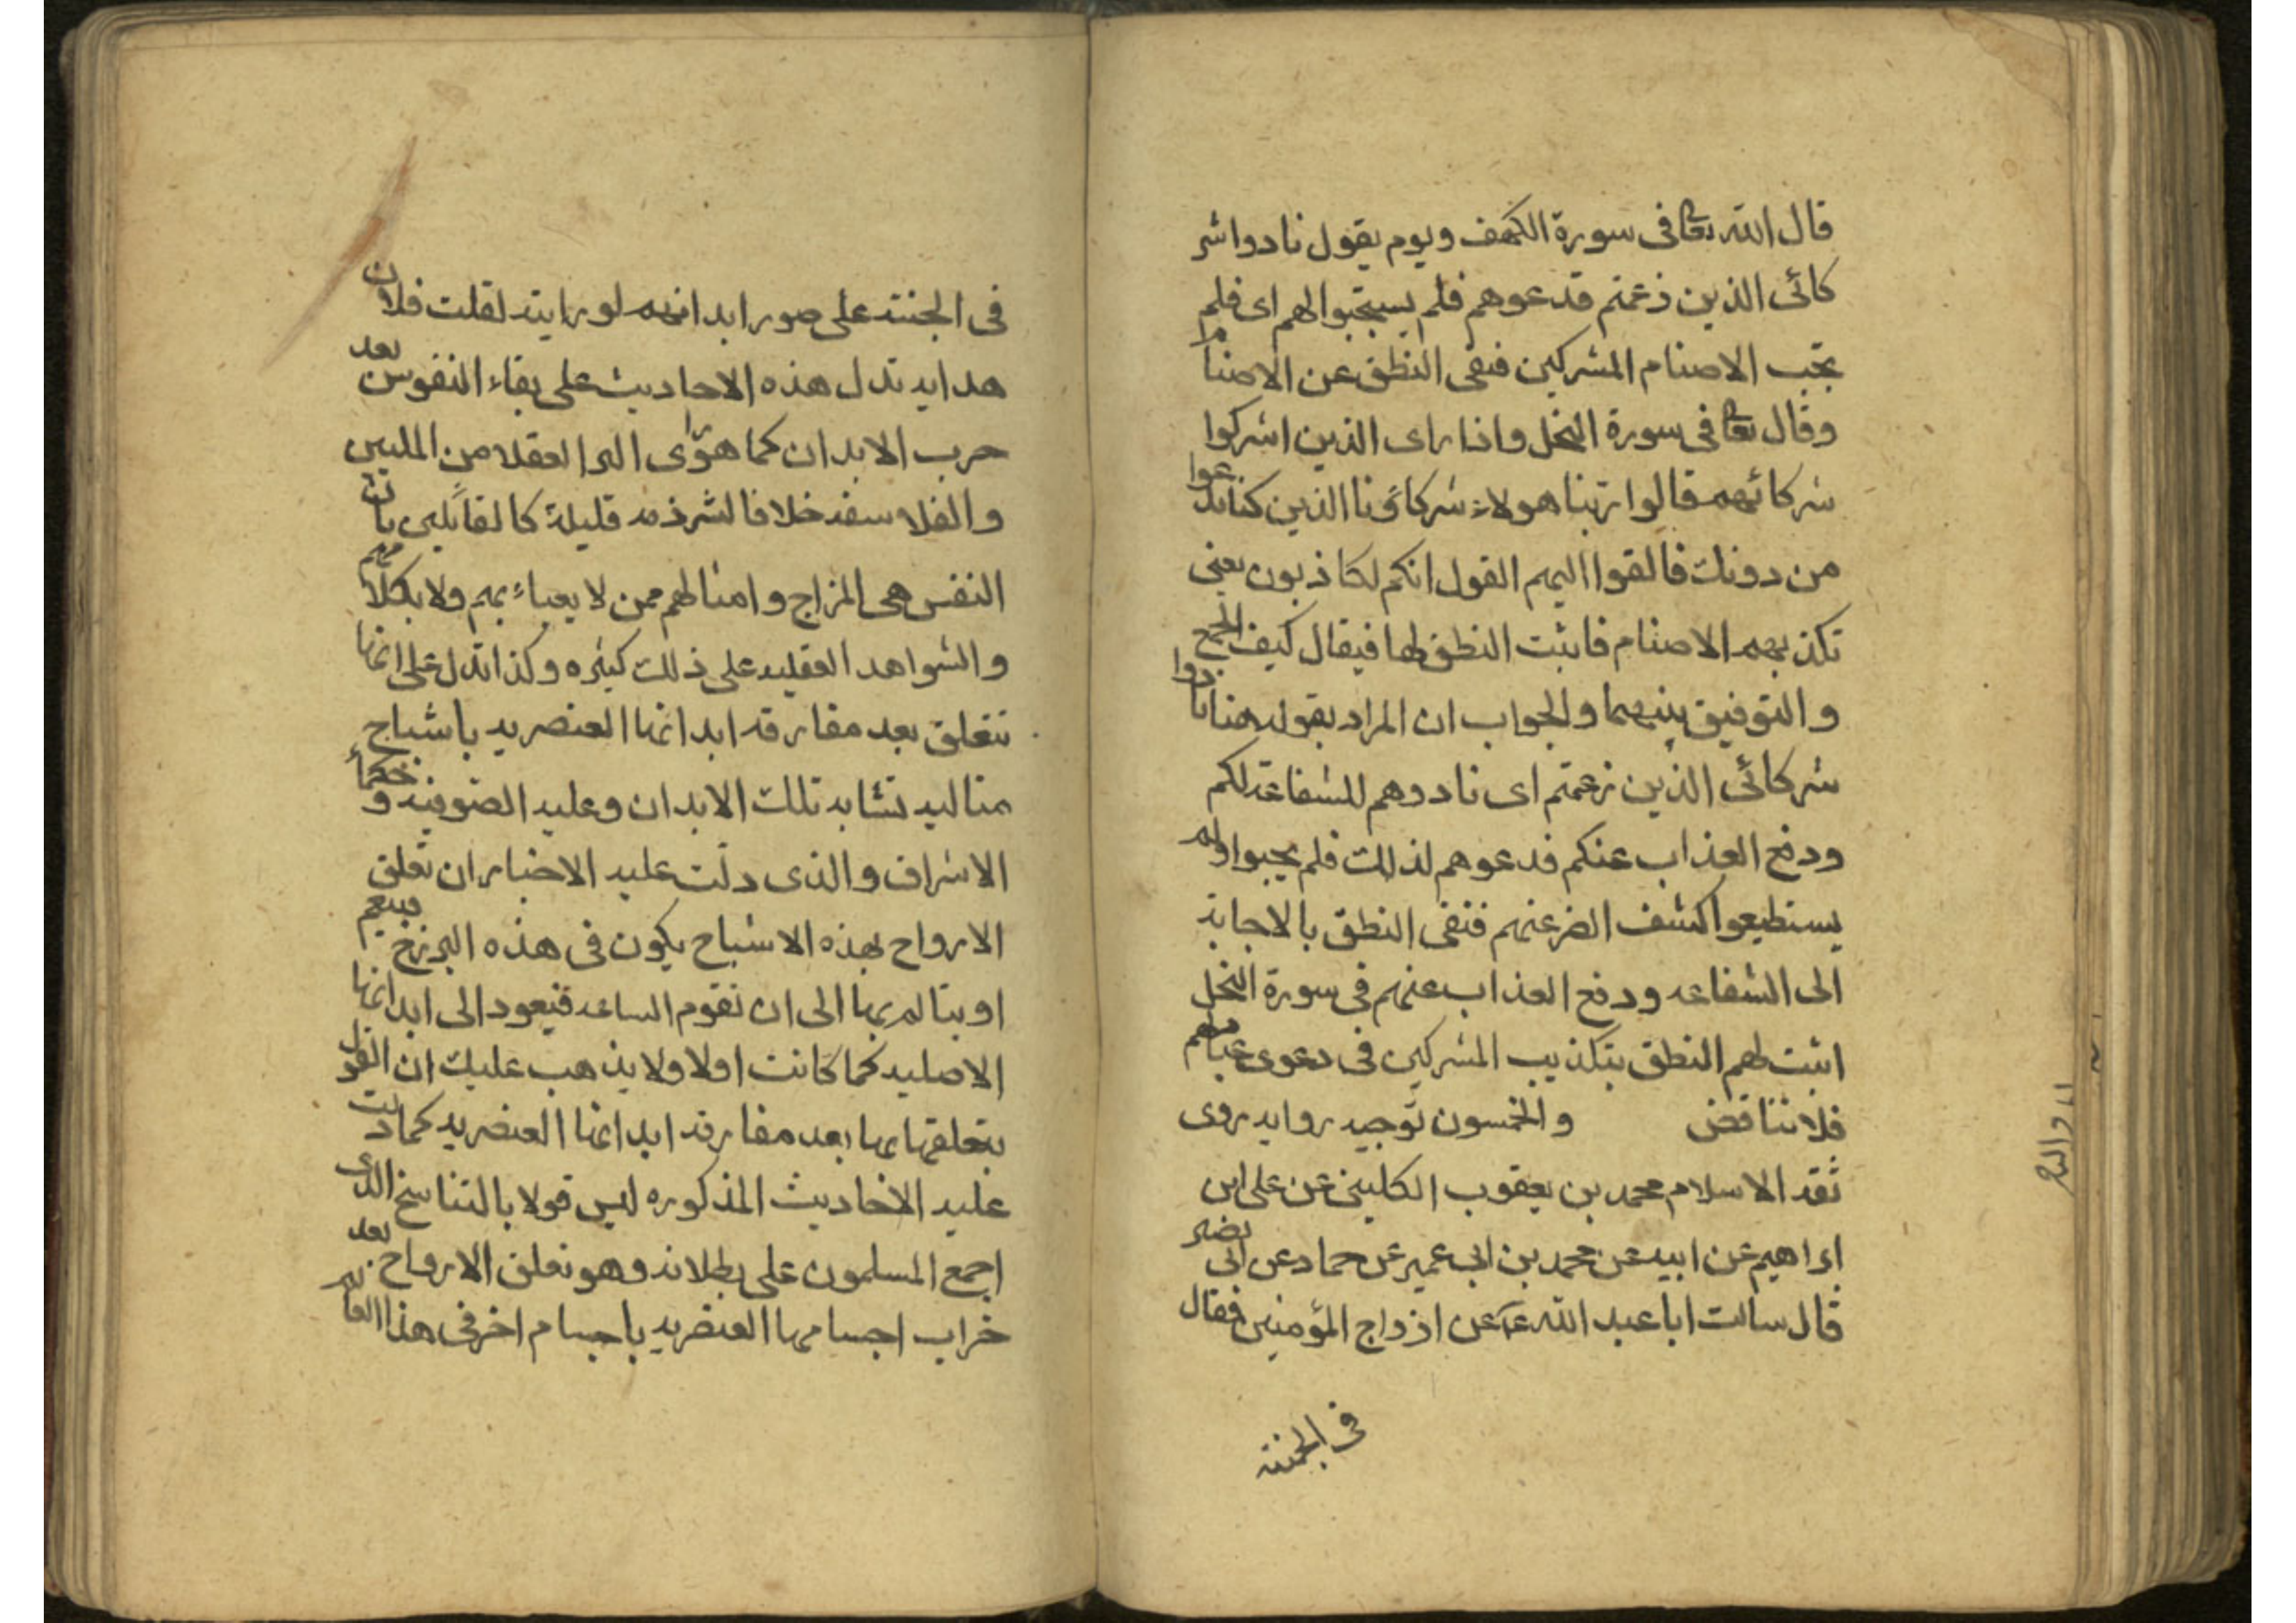 قال الله تعا فى سورة الكهف ويوم يقول نادوا شر
كائى الذين زعمتم فدعوهم فلم يستجبوا لهم اى فلم
تجب الاصنام المشركين فنفى النطق عن الاصنام
وقال تعا فى سورة النحل واذا راى الذين اشركوا
شركائهم قالوا ربنا هولاء شركاؤنا الذين كنا ندعوا
من دونك فالقوا اليهم القول انكم لكاذبون يعنى
تكذبهم الاصنام فاثبت النطق لها فيقال كيف الجمع
والتوفيق بينهما والجواب ان المراد بقوله هنا نادوا
شركائى الذين زعمتم اى نادوهم للشفاعة لكم
ودفع العذاب عنكم فدعوهم لذلك فلم يجبوا ولم
يستطيعوا كشف الضر عنهم فنفى النطق بالاجابة
الى الشفاعه ودفع العذاب عنهم فى سورة النحل
اثبت لهم النطق بتكذيب المشركين فى دعوى عبادتهم
فلا تناقض والخمسون توجيه روايه روى
ثقه الاسلام محمد بن يعقوب الكلينى عن على ابن
ابراهيم عن ابيه عن محمد بن ابى عمير عن حماد عن ابى بصير
قال سالت ابا عبد الله ع عن ازواج المؤمنين فقال
فى الجنته
فى الجنته على صور ابدانهم لو رايته لقلت فلان
هدايه تدل هذه الاحاديث على بقاء النفوس بعد
خرب الابدان كما هو راى اكثر العقلا من المليين
والفلاسفه خلافا لشرذمه قليلة كالقائلين بان
النفس هى المزاج وامثالهم ممن لا يعباء بهم ولا بكلامهم
والشواهد العقليه على ذلك كثيره وكذا تدل على انها
تتعلق بعد مفارقه ابدانها العنصريه باشباح
مثاليه تشابه تلك الابدان وعليه الصوفيه وحكماء
الاشراف والذى دلت عليه الاخبار ان تعلق
الارواح بهذه الاشباح يكون فى هذه البرزخ فيتنعم
او يتالم بها الى ان تقوم الساعه فيعود الى ابدانها
الاصليه كما كانت اولا ولا يذهب عليك ان القول
بتعلقها بها بعد مفارقه ابدانها العنصريه كما دلت
عليه الاخاديث المذكوره ليس قولا بالتناسخ الذى
اجمع المسلمون على بطلانه وهو تعلق الارواح بعد
خراب اجسامها العنصريه باجسام اخر فى هذا العالم